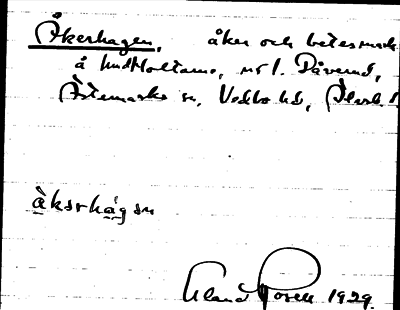 Åkerhagen, åker och betesmark
å Hultbottame, nr 1. Påverud,
Årtemarks sn, Vedbo hd, Älvsb. l
àkərhágən
Erland Rosell 1929.